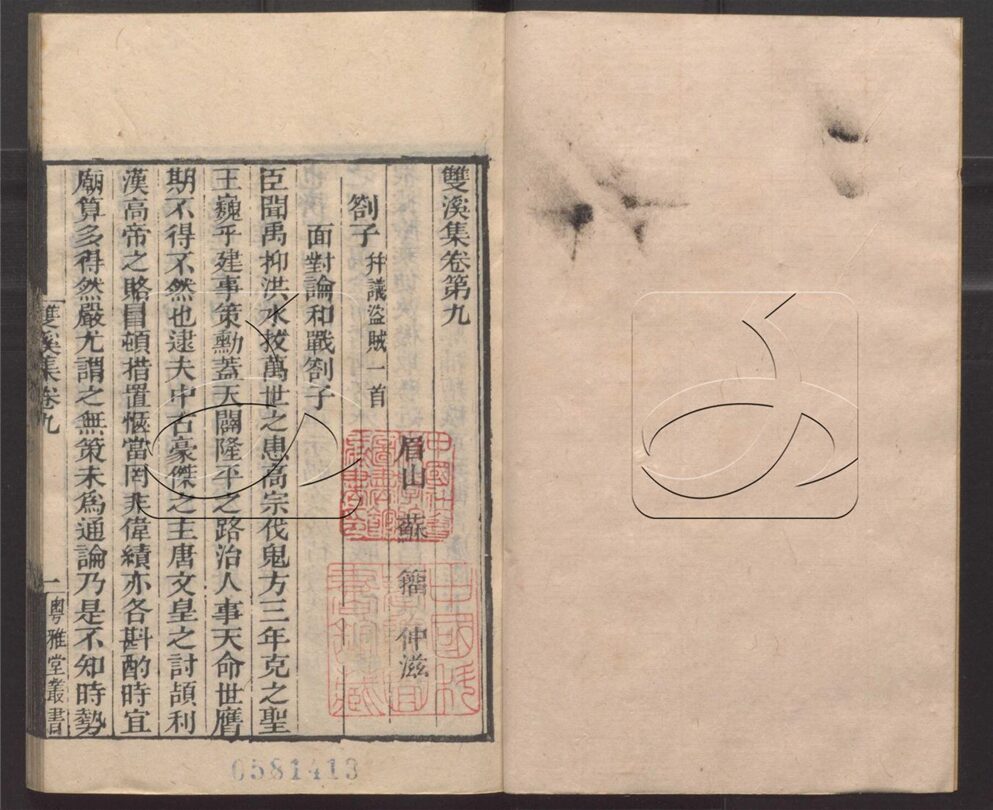 雙溪集卷第九
眉山蘇籀仲滋
劄子 幷議盜賊一首
面對論和戰劄子
臣聞禹抑洪水拯萬世之患高宗伐鬼方三年克之聖
王巍乎建事策勳蓋天闢隆平之路治人事天命世膺
期不得不然也逮夫中古豪傑之主唐文皇之討頡利
漢高帝之賂冒頓措置愜當罔非偉績亦各斟酌時宜
廟算多得然嚴尤謂之無策未爲通論乃是不知時勢
雙溪集卷九
一
粵雅堂叢書
0581413